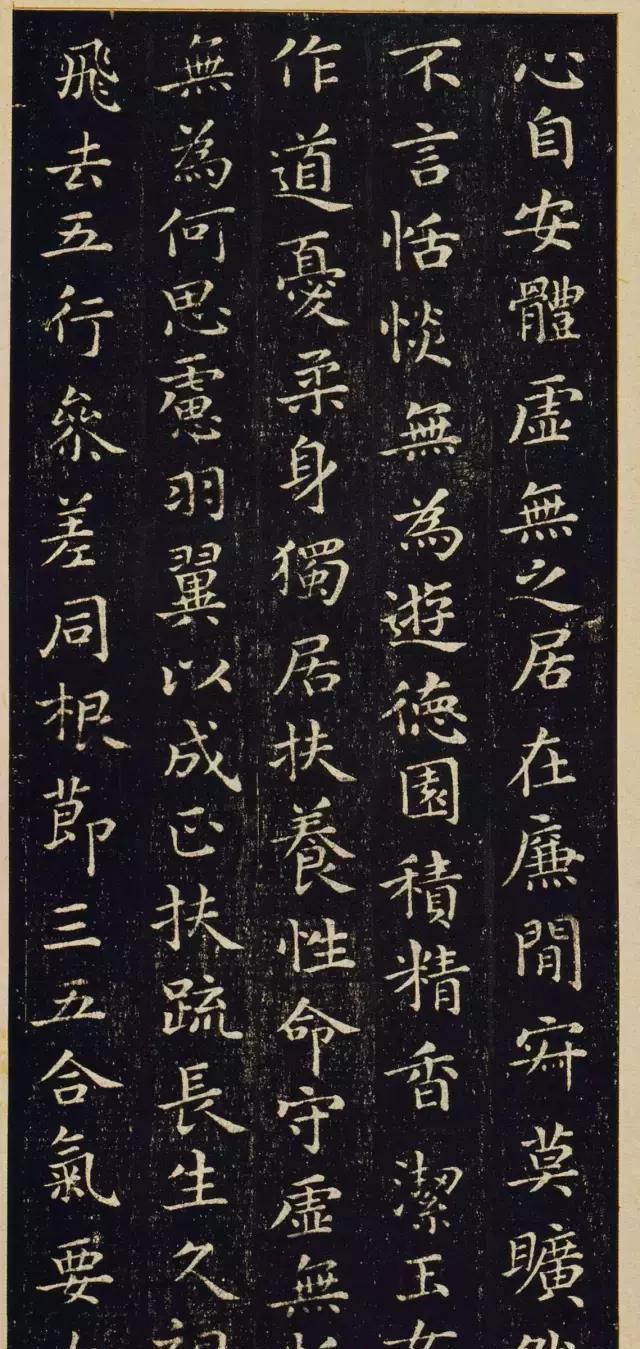 心自安體虛無之居在廉閒寂莫曠然
不言恬惔無為遊德園積精香潔玉女
作道憂柔身獨居扶養性命守虛無恬
無為何思慮羽翼以成正扶疏長生久視
飛去五行參差同根節三五合氣要